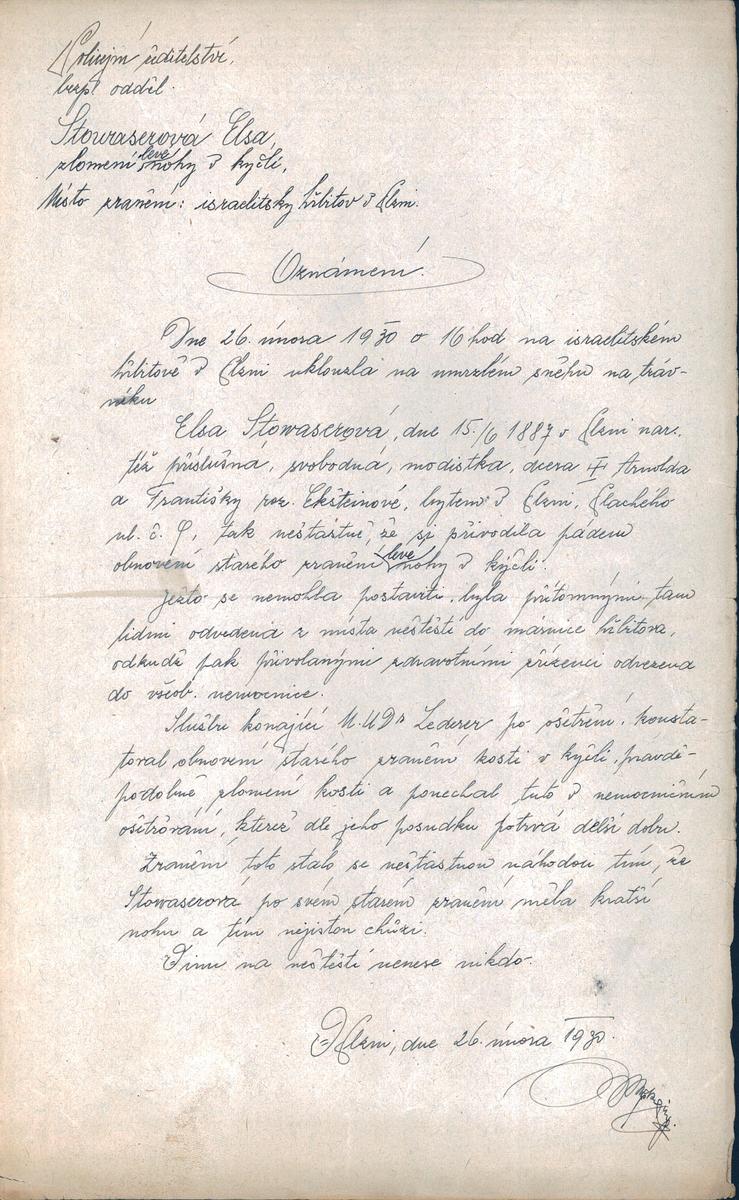 Policejní ředitelství,
bezp. odděl.
Stowaserová Elsa,
zlomení levé nohy v kyčli,
Místo zranění: israelitský hřbitov v Plzni.
Oznámení.
Dne 26. února 1930 o 16 hod na israelitském
hřbitově v Plzni uklouzla na umrzlém sněhu na tráv-
níku
Elsa Stowaserová, dne 15./6 1887 v Plzni nar.,
též příslušná, svobodná, modistka, dcera Arnolda
a Františky roz. Ekšteinové, bytem v Plzni, Plachého
ul. č. 9, tak nešťastně, že si přivodila pádem
obnovení starého zranění levé nohy v kyčli.
Ježto se nemohla postaviti, byla přítomnými tam
lidmi odvedena z místa neštěstí do márnice hřbitova,
odkudž pak přivolanými zdravotními zřízenci odvezena
do všeob. nemocnice.
Službu konající M.U.Dr Lederer po ošetření konsta-
toval obnovení starého zranění kosti v kyčli, pravdě-
podobně zlomení kosti a ponechal tuto v nemocničním
ošetřování, kteréž dle jeho posudku potrvá delší dobu.
Zranění toto stalo se nešťastnou náhodou tím, že
Stowaserová po svém starém zranění měla kratší
nohu a tím nejistou chůzi.
Vinu na neštěstí nenese nikdo.
V Plzni, dne 26. února 1930.